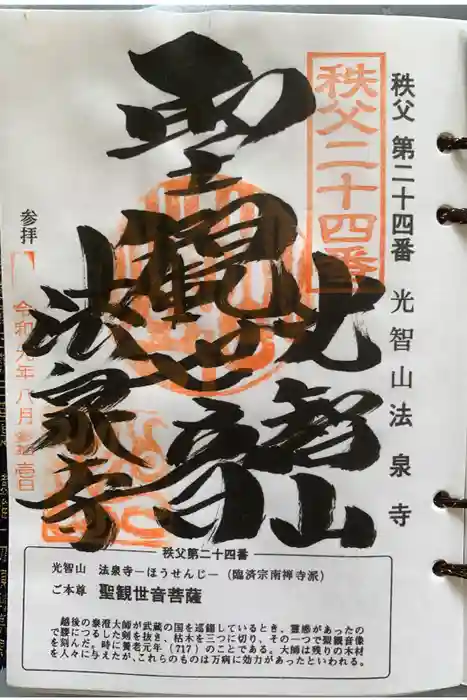 秩父 第二十四番 光智山 法泉寺
秩父二十四番
光智山
聖観世音
法泉寺
参拝
令和元年八月
秩父第二十四番
光智山 法泉寺―ほうせんじ―(臨済宗南禅寺派)
ご本尊 聖観世音菩薩
越後の泉澄大師が武蔵の国を巡錫しているとき、霊感があったの
で腰につるした剣を抜き、枯木を三つに切り、その一つで聖観音像
を刻んだ。時に養老元年(717)のことである。大師は残りの木材
を人々に与えたが、これらのものは万病に効力があったといわれる。